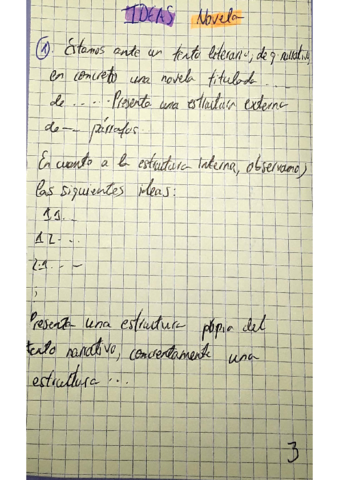 IDEAS Novela
① Estamos ante un texto literario, de g. narrativo,
en concreto una novela titulada ....
de ..... Presenta una estructura externa
de --- párrafos.
En cuanto a la estructura interna, observamos
las siguientes ideas:
1.1. ..
1.2. ..
2.1. - --
;
Presenta una estructura propia del
texto narrativo, concretamente una
estructura ...
3